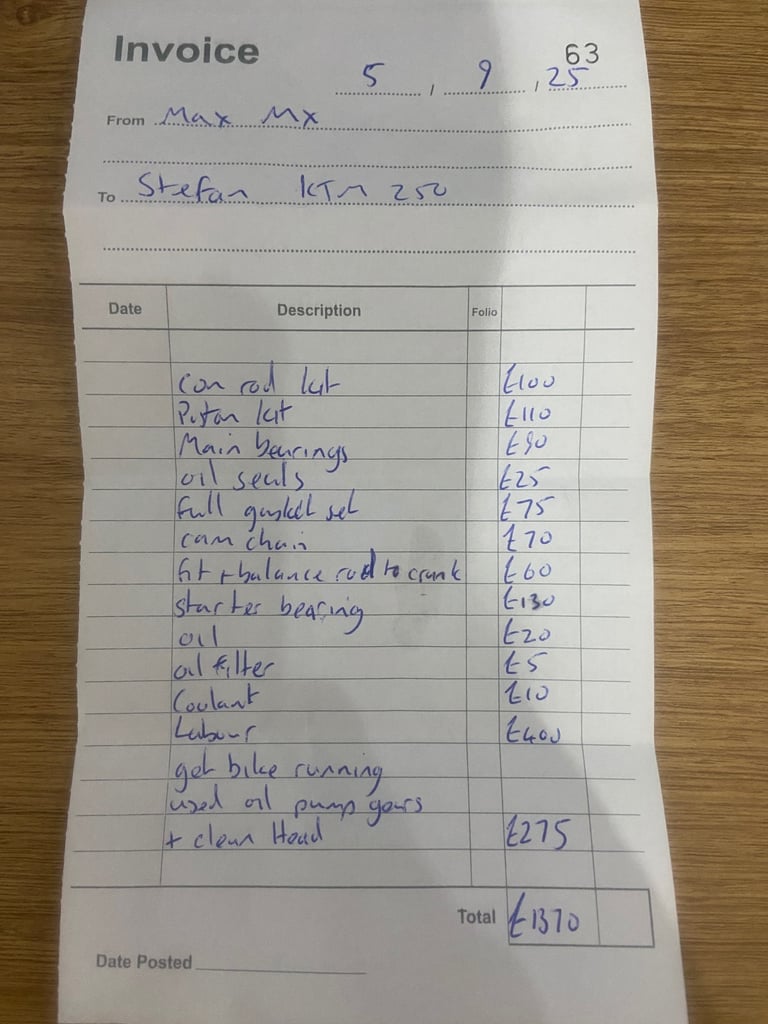 Invoice
63
5 , 9 , 25
From Max Mx
To Stefan KTM 250
Date Description Folio
Con rod kit £100
Piston kit £110
Main bearings £90
oil seals £25
full gasket set £75
cam chain £70
fit + balance rod to crank £60
starter bearing £130
oil £20
oil filter £5
Coolant £10
Labour £400
get bike running
used oil pump gears
+ clean Head £275
Total £1370
Date Posted